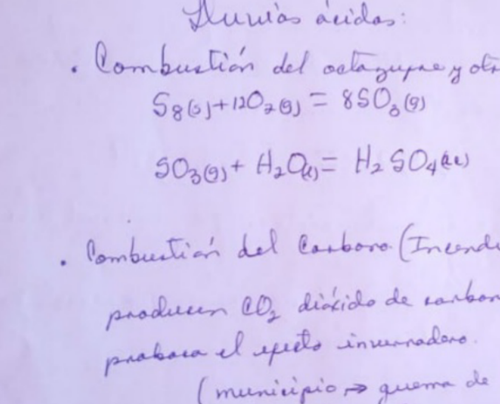 Lluvias ácidas:
• Combustión del octazufre y otr
S8(s)+12O2(g) = 8SO3(g)
SO3(g) + H2O(l) = H2SO4(ac)
• Combustión del Carbono (Incendi
producen CO2 dióxido de carbon
probaca el efecto invernadero.
(municipio → quema de